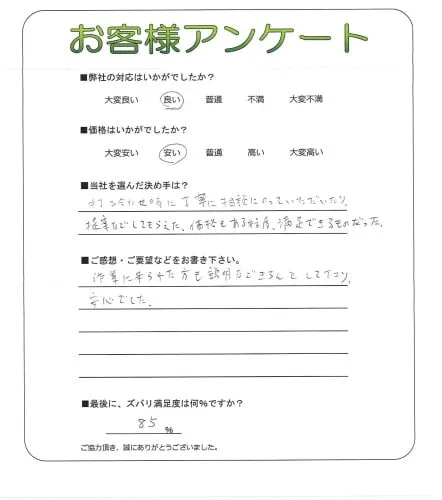 お客様アンケート
■弊社の対応はいかがでしたか？
大変良い 良い 普通 不満 大変不満
■価格はいかがでしたか？
大変安い 安い 普通 高い 大変高い
■当社を選んだ決め手は？
打ち合わせ時に丁寧に相談にのっていただいたり、
提案などしてもらえた。価格もある程度、満足できるものだった。
■ご感想・ご要望などをお書き下さい。
作業に来られた方も説明などきちんとしており、
安心でした。
■最後に、ズバリ満足度は何％ですか？
85 %
ご協力頂き、誠にありがとうございました。